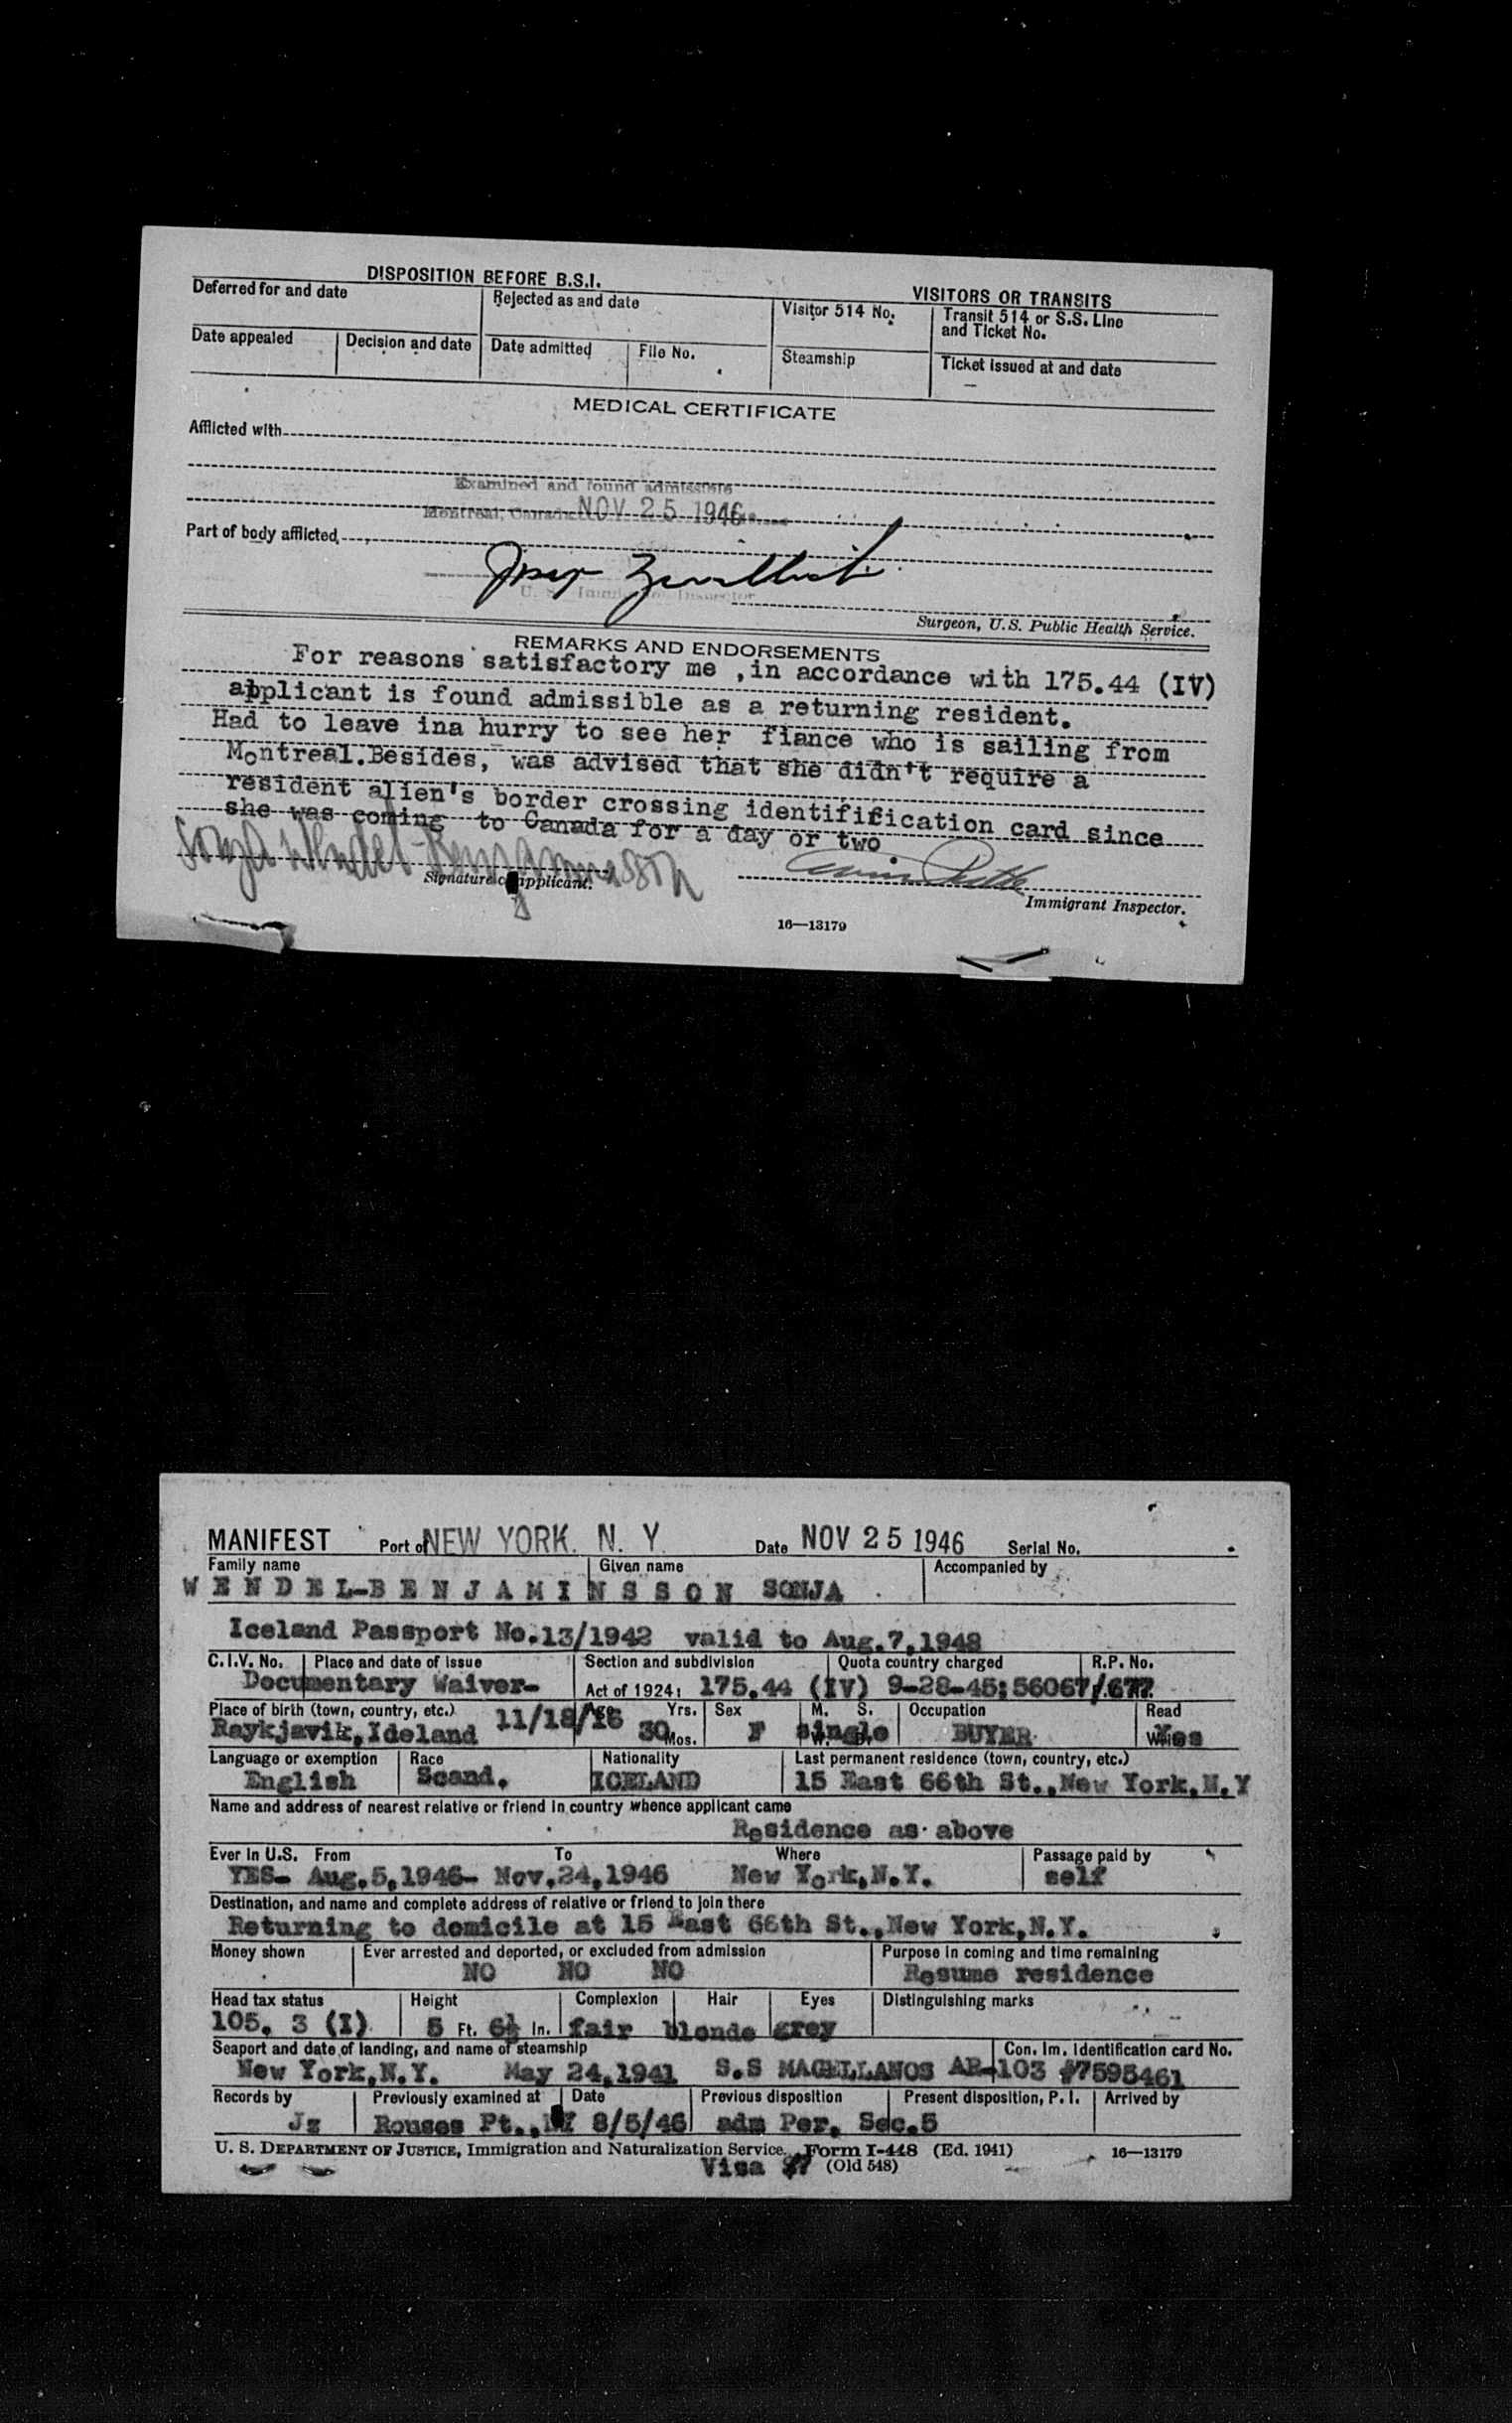 DISPOSITION BEFORE B.S.I.
VISITORS OR TRANSITS
Deferred for and date
Rejected as and date
Visitor 514 No.
Transit 514 or S.S. Line and Ticket No.
Date appealed
Decision and date
Date admitted
File No.
Steamship
Ticket issued at and date
MEDICAL CERTIFICATE
Afflicted with
Examined and found admissible
Montreal, Canada NOV 25 1946
Part of body afflicted
U. S. Immigrant Inspector
Surgeon, U.S. Public Health Service.
REMARKS AND ENDORSEMENTS
For reasons satisfactory me ,in accordance with 175.44 (IV)
applicant is found admissible as a returning resident.
Had to leave ina hurry to see her fiance who is sailing from
Montreal.Besides, was advised that she didn't require a
resident alien's border crossing identifification card since
she was coming to Canada for a day or two
Sonja Wendel-Benjaminsson
Signature of applicant.
Immigrant Inspector.
16—13179
MANIFEST Port of NEW YORK. N. Y. Date NOV 25 1946 Serial No.
Family name Given name Accompanied by
WENDEL-BENJAMINSSON SONJA
Iceland Passport No.13/1942 valid to Aug.7,1948
C.I.V. No. Place and date of issue Section and subdivision Quota country charged R.P. No.
Documentary Waiver- Act of 1924: 175.44 (IV) 9-28-45;56067/.677
Place of birth (town, country, etc.) Age Yrs. Sex M. S. Occupation Read
Raykjavik,Ideland 11/18/16 30 Mos. F single BUYER Write Yes
Language or exemption Race Nationality Last permanent residence (town, country, etc.)
English Scand. ICELAND 15 East 66th St.,New York,N.Y
Name and address of nearest relative or friend in country whence applicant came
Residence as above
Ever in U.S. From To Where Passage paid by
YES- Aug.5,1946- Nov.24,1946 New York,N.Y. self
Destination, and name and complete address of relative or friend to join there
Returning to domicile at 15 East 66th St.,New York,N.Y.
Money shown Ever arrested and deported, or excluded from admission Purpose in coming and time remaining
NO NO NO Resume residence
Head tax status Height Complexion Hair Eyes Distinguishing marks
105. 3 (I) 5 Ft. 6½ In. fair blonde grey
Seaport and date of landing, and name of steamship Con. Im. Identification card No.
New York,N.Y. May 24,1941 S.S MAGELLANOS AR-103 #7595461
Records by Previously examined at Date Previous disposition Present disposition, P. I. Arrived by
Jz Rouses Pt.,NY 8/5/46 adm Per. Sec.5
U. S. DEPARTMENT OF JUSTICE, Immigration and Naturalization Service. Form I-448 (Ed. 1941) 16—13179
Visa (Old 548)